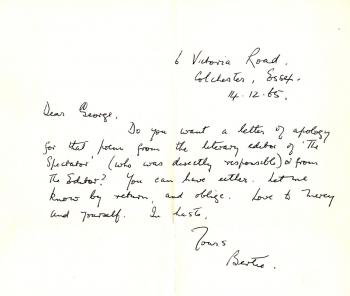 6 Victoria Road.
Colchester, Essex.
14.12.65.
Dear George.
Do you want a letter of apology
for that poem from the literary editor of 'The
Spectator' (who was directly responsible) or from
the Editor? You can have either. Let me
know by return, and oblige. Love to Mercy
and yourself. In haste.
Yours
Bertie.